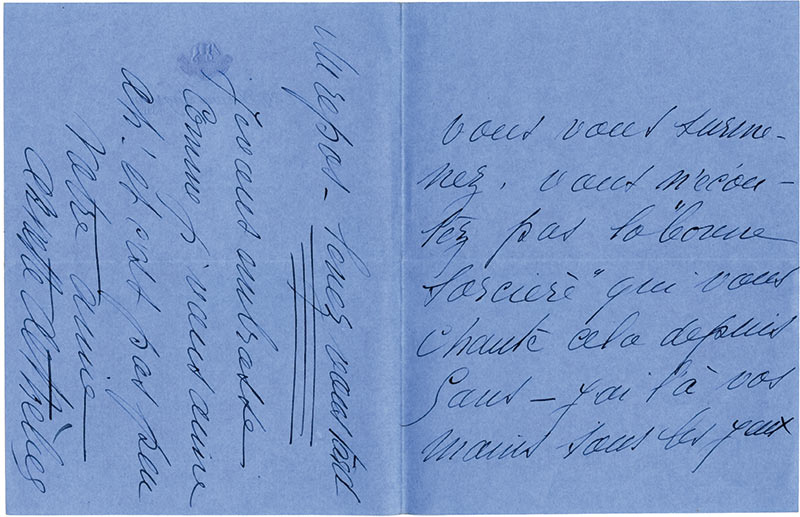 vous vous surme-
nez. vous n'écou-
tez pas la "bonne
sorcière" qui vous
chante cela depuis
5 ans – j'ai là vos
mains sous les yeux
Du repos – tenez vous
Je vous embrasse
comme j'vous aime
ah! et c'est pas peu
Votre amie
de Thèbes